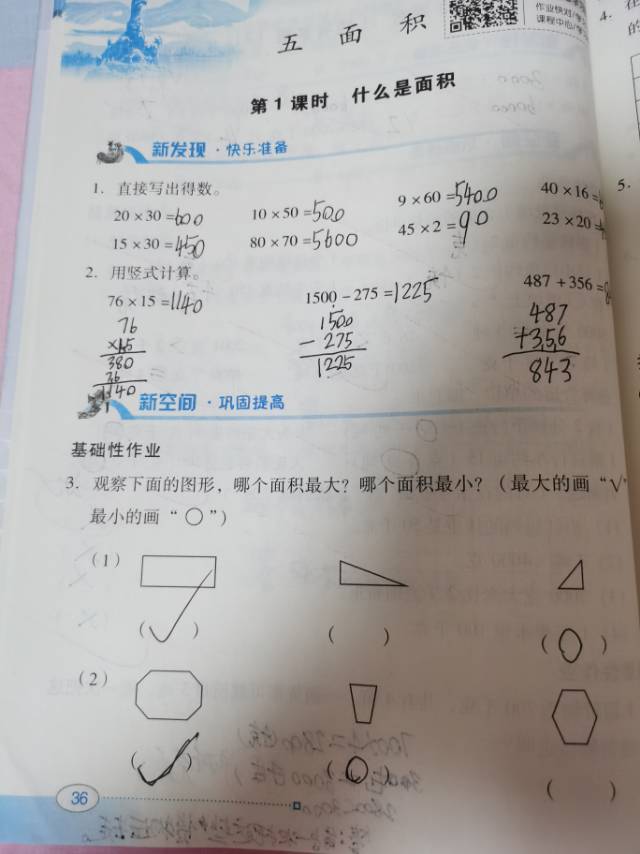 作业快对
课程中心
五 面 积
第1课时 什么是面积
新发现·快乐准备
1. 直接写出得数。
20×30=600 10×50=500 9×60=5400 40×16=
15×30=450 80×70=5600 45×2=90 23×20=
2. 用竖式计算。
76×15=1140 1500-275=1225 487+356=8
76 1500 487
×15 -275 +356
380 1225 843
76
1140
新空间·巩固提高
基础性作业
3. 观察下面的图形，哪个面积最大？哪个面积最小？（最大的画“√”
最小的画“○”）
(1)
(√) ( ) (○)
(2)
(√) (○) ( )
36
4. 在
的
5.